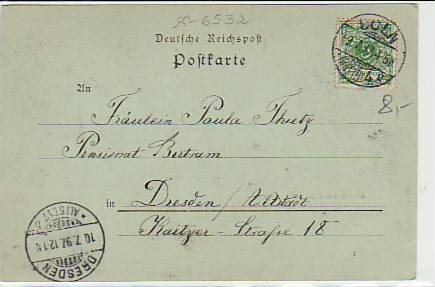 A- 6532
Deutsche Reichspost
Postkarte
CÖLN
9.7.97
An
Fräulein Paula Thutz
Pensionat Bertram
8,-
in Dresden / Altstadt
Kaitzer-Straße 18
DRESDEN ALTSTADT
10.7.97.12-1N.